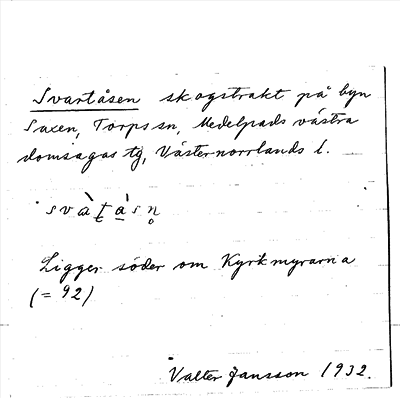 Svartåsen skogstrakt på byn
Saxen, Torps sn, Medelpads västra
domsagas tg, Västernorrlands l.
Ligger söder om Kyrkmyrarna
(= 92)
Valter Jansson 1932.